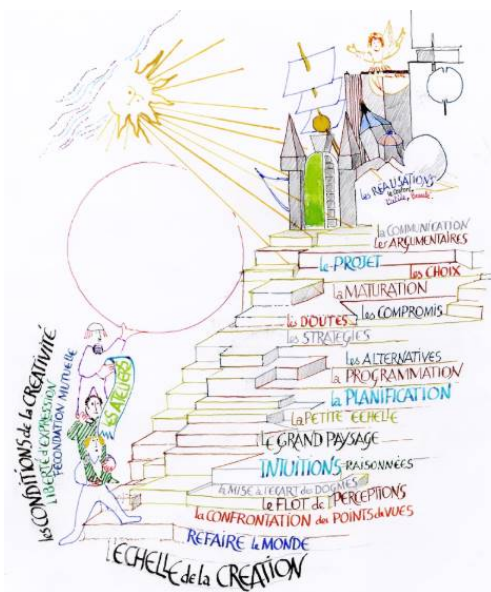 les RÉALISATIONS
la COMMUNICATION
les ARGUMENTAIRES
le PROJET
les CHOIX
la MATURATION
les DOUTES
les COMPROMIS
les STRATEGIES
les ALTERNATIVES
la PROGRAMMATION
la PLANIFICATION
la PETITE ECHELLE
LE GRAND PAYSAGE
INTUITIONS RAISONNÉES
la MISE à l'ECART des DOGMES
LE FLOT de PERCEPTIONS
la CONFRONTATION des POINTS de VUES
REFAIRE le MONDE
L'ECHELLE de la CREATION
les CONDITIONS de la CREATIVITÉ
LIBERTE d'EXPRESSION
FÉCONDATION MUTUELLE
LES ATELIERS